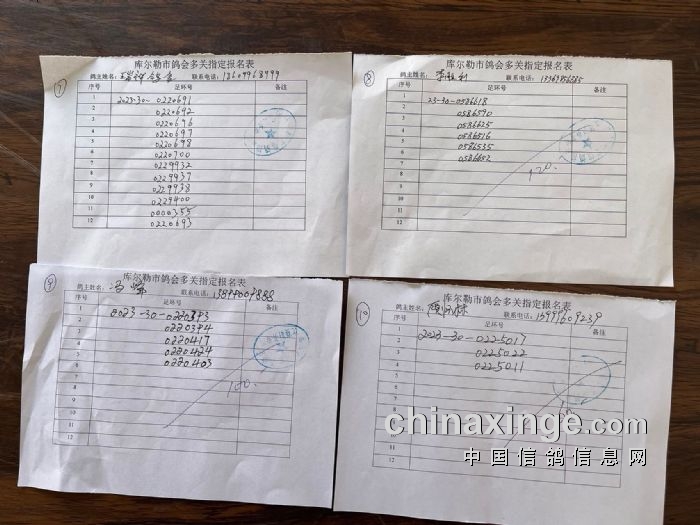 7
库尔勒市鸽会多关指定报名表
鸽主姓名: 瑞祥鸽舍 联系电话: 18609968999
序号 足环号 备注
1 2023-30-0220691
2 0220692
3 0220696
4 0220697
5 0220698
6 0220700
7 0229932
8 0229937
9 0229938
10 0229400
11 0000355
12 0220693
8
库尔勒市鸽会多关指定报名表
鸽主姓名: 联系电话:
序号 足环号 备注
1 23-30-0586618
2 0586590
3 0586625
4 0586516
5 0586535
6 0586652
7 120.
8
9
10
11
12
9
库尔勒市鸽会多关指定报名表
鸽主姓名: 冯辉 联系电话:
序号 足环号 备注
1 2023-30-0220393
2 0220394
3 0220417
4 0220424
5 0220403
6
7 100.
8
9
10
11
12
10
库尔勒市鸽会多关指定报名表
鸽主姓名: 联系电话: 15999609239
序号 足环号 备注
1 2023-30-0225017
2 0225022
3 0225011
4
5
6
7
8
9
10
11
12
chinaxinge.com
中国信鸽信息网